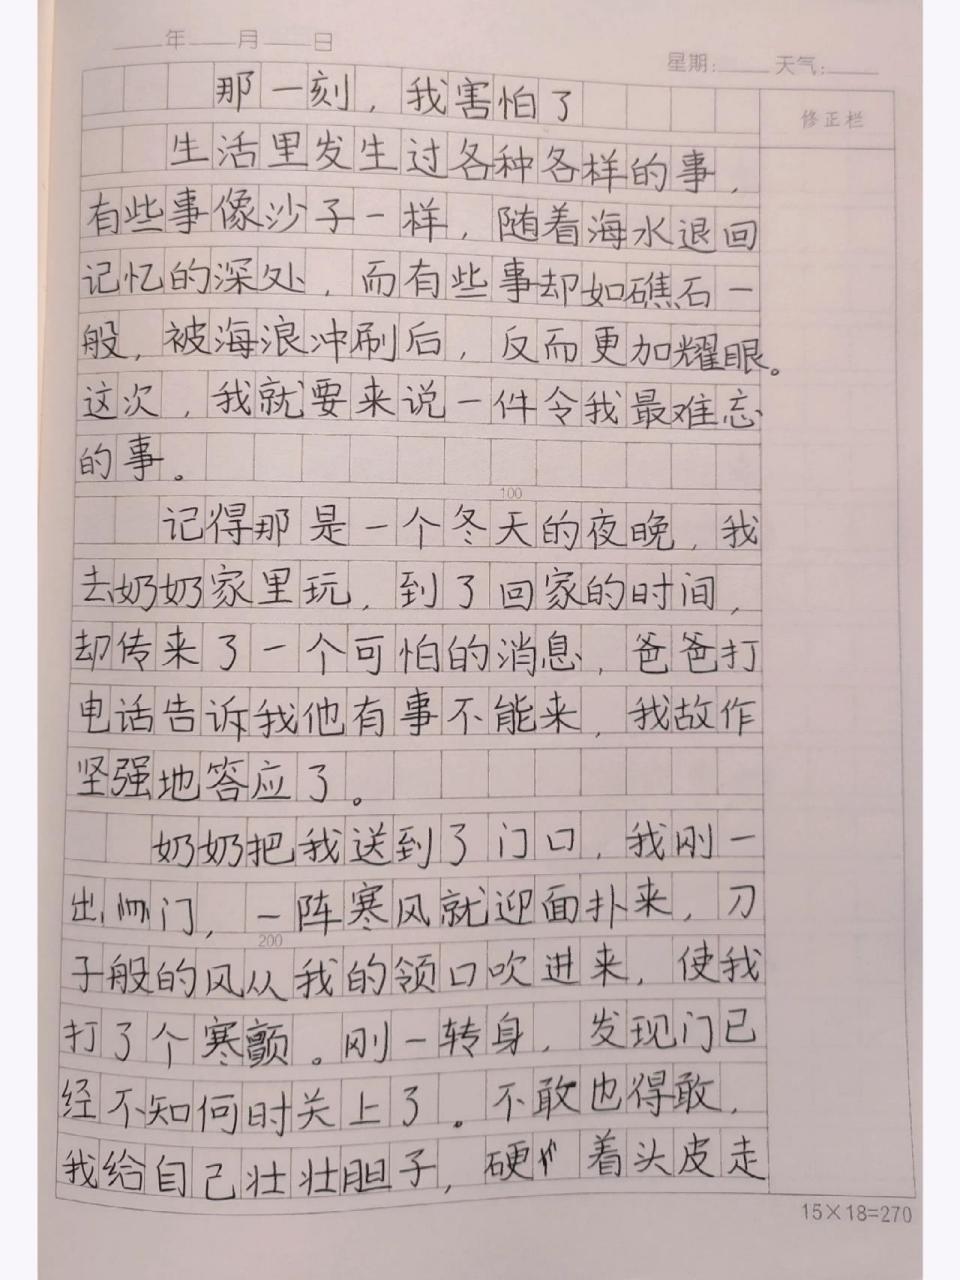 ____年____月____日
星期:____天气:____
那一刻，我害怕了
修正栏
生活里发生过各种各样的事，
有些事像沙子一样，随着海水退回
记忆的深处，而有些事却如礁石一
般，被海浪冲刷后，反而更加耀眼。
这次，我就要来说一件令我最难忘
的事。
100
记得那是一个冬天的夜晚，我
去奶奶家里玩，到了回家的时间，
却传来了一个可怕的消息，爸爸打
电话告诉我他有事不能来，我故作
坚强地答应了。
奶奶把我送到了门口，我刚一
出门，一阵寒风就迎面扑来，刀
200
子般的风从我的领口吹进来，使我
打了个寒颤。刚一转身，发现门已
经不知何时关上了。不敢也得敢，
我给自己壮壮胆子，硬着头皮走
15×18=270